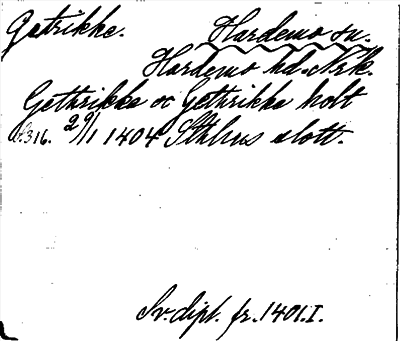 Getrikke. Hardemo sn.
Hardemo hd. Nrk.
Gethrikke oc Gethrikke holt
s. 316. 29/1 1404 Sthlms slott.
Sv. dipl. fr. 1401. I.